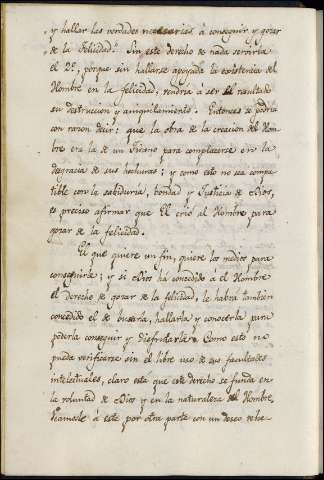 y hallar las verdades necesarias á conseguir y gozar
de la felicidad. Sin este derecho de nada serviria
el 2º, porque sin hallarse apoyada la existencia del
Hombre en la felicidad, vendria á ser el resultado
su destruccion y aniquilamiento. Entonces se podria
con razon decir: que la obra de la creacion del Hom-
bre era la de un Tirano para complacerse en la
desgracia de sus hechuras: y como esto no sea compa-
tible con la sabiduria, bondad y Justicia de Dios,
es preciso afirmar que El crió al Hombre para
gozar de la felicidad.
El que quiere un fin, quiere los medios para
conseguirle; y si Dios ha concedido á el Hombre
el derecho de gozar de la felicidad, le habra tambien
concedido el de buscarla, hallarla y conocerla para
poderla conseguir y disfrutarla. Como esto no
pueda verificarse sin el libre uso de sus facultades
intelectuales, claro esta que este derecho se funda en
la voluntad de Dios y en la naturaleza del Hombre.
á este por otra parte con un deseo vehe-